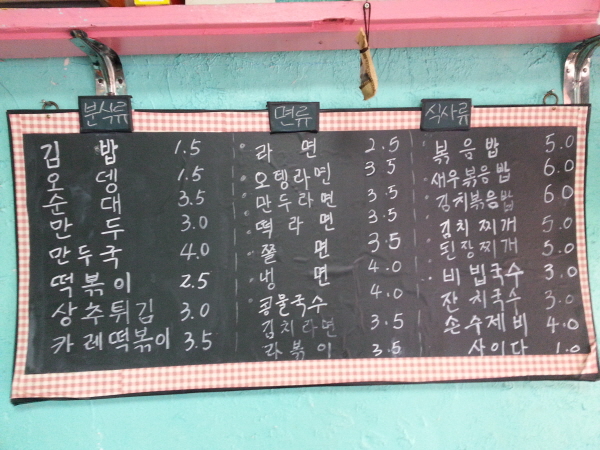 분식류
김 밥 1.5
오 뎅 1.5
순 대 3.5
만 두 3.0
만두국 4.0
떡볶이 2.5
상추튀김 3.0
카레떡볶이 3.5
면류
라 면 2.5
오뎅라면 3.5
만두라면 3.5
떡 라 면 3.5
쫄 면 3.5
냉 면 4.0
콩물국수 4.0
김치라면 3.5
라볶이 3.5
식사류
볶음밥 5.0
새우볶음밥 6.0
김치볶음밥 6.0
김치찌개 5.0
된장찌개 5.0
비빔국수 3.0
잔치국수 3.0
손수제비 4.0
사이다 1.0